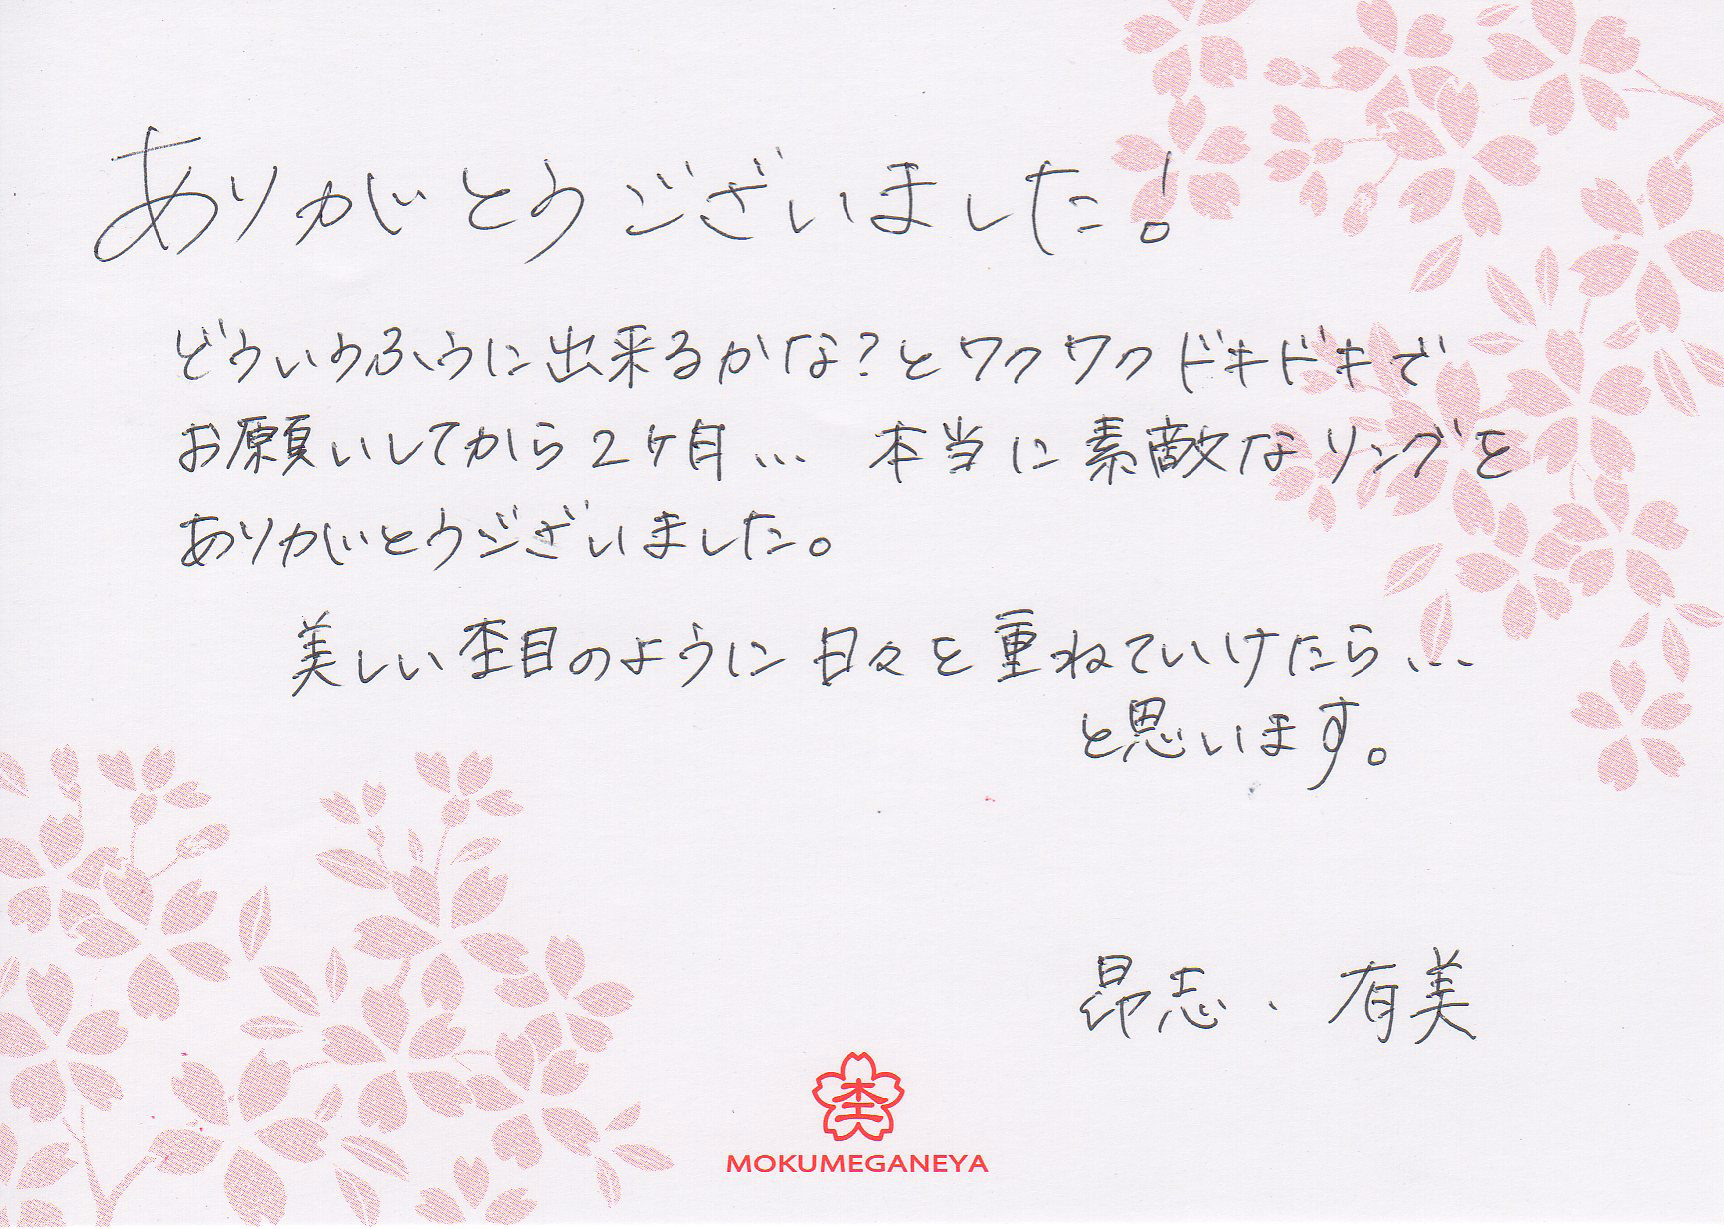 ありがとうございました!
どういうふうに出来るかな?とワクワクドキドキで
お願いしてから2ヶ月… 本当に素敵なリングを
ありがとうございました。
美しい杢目のように日々を重ねていけたら…
と思います。
昂志・有美
杢
MOKUMEGANEYA